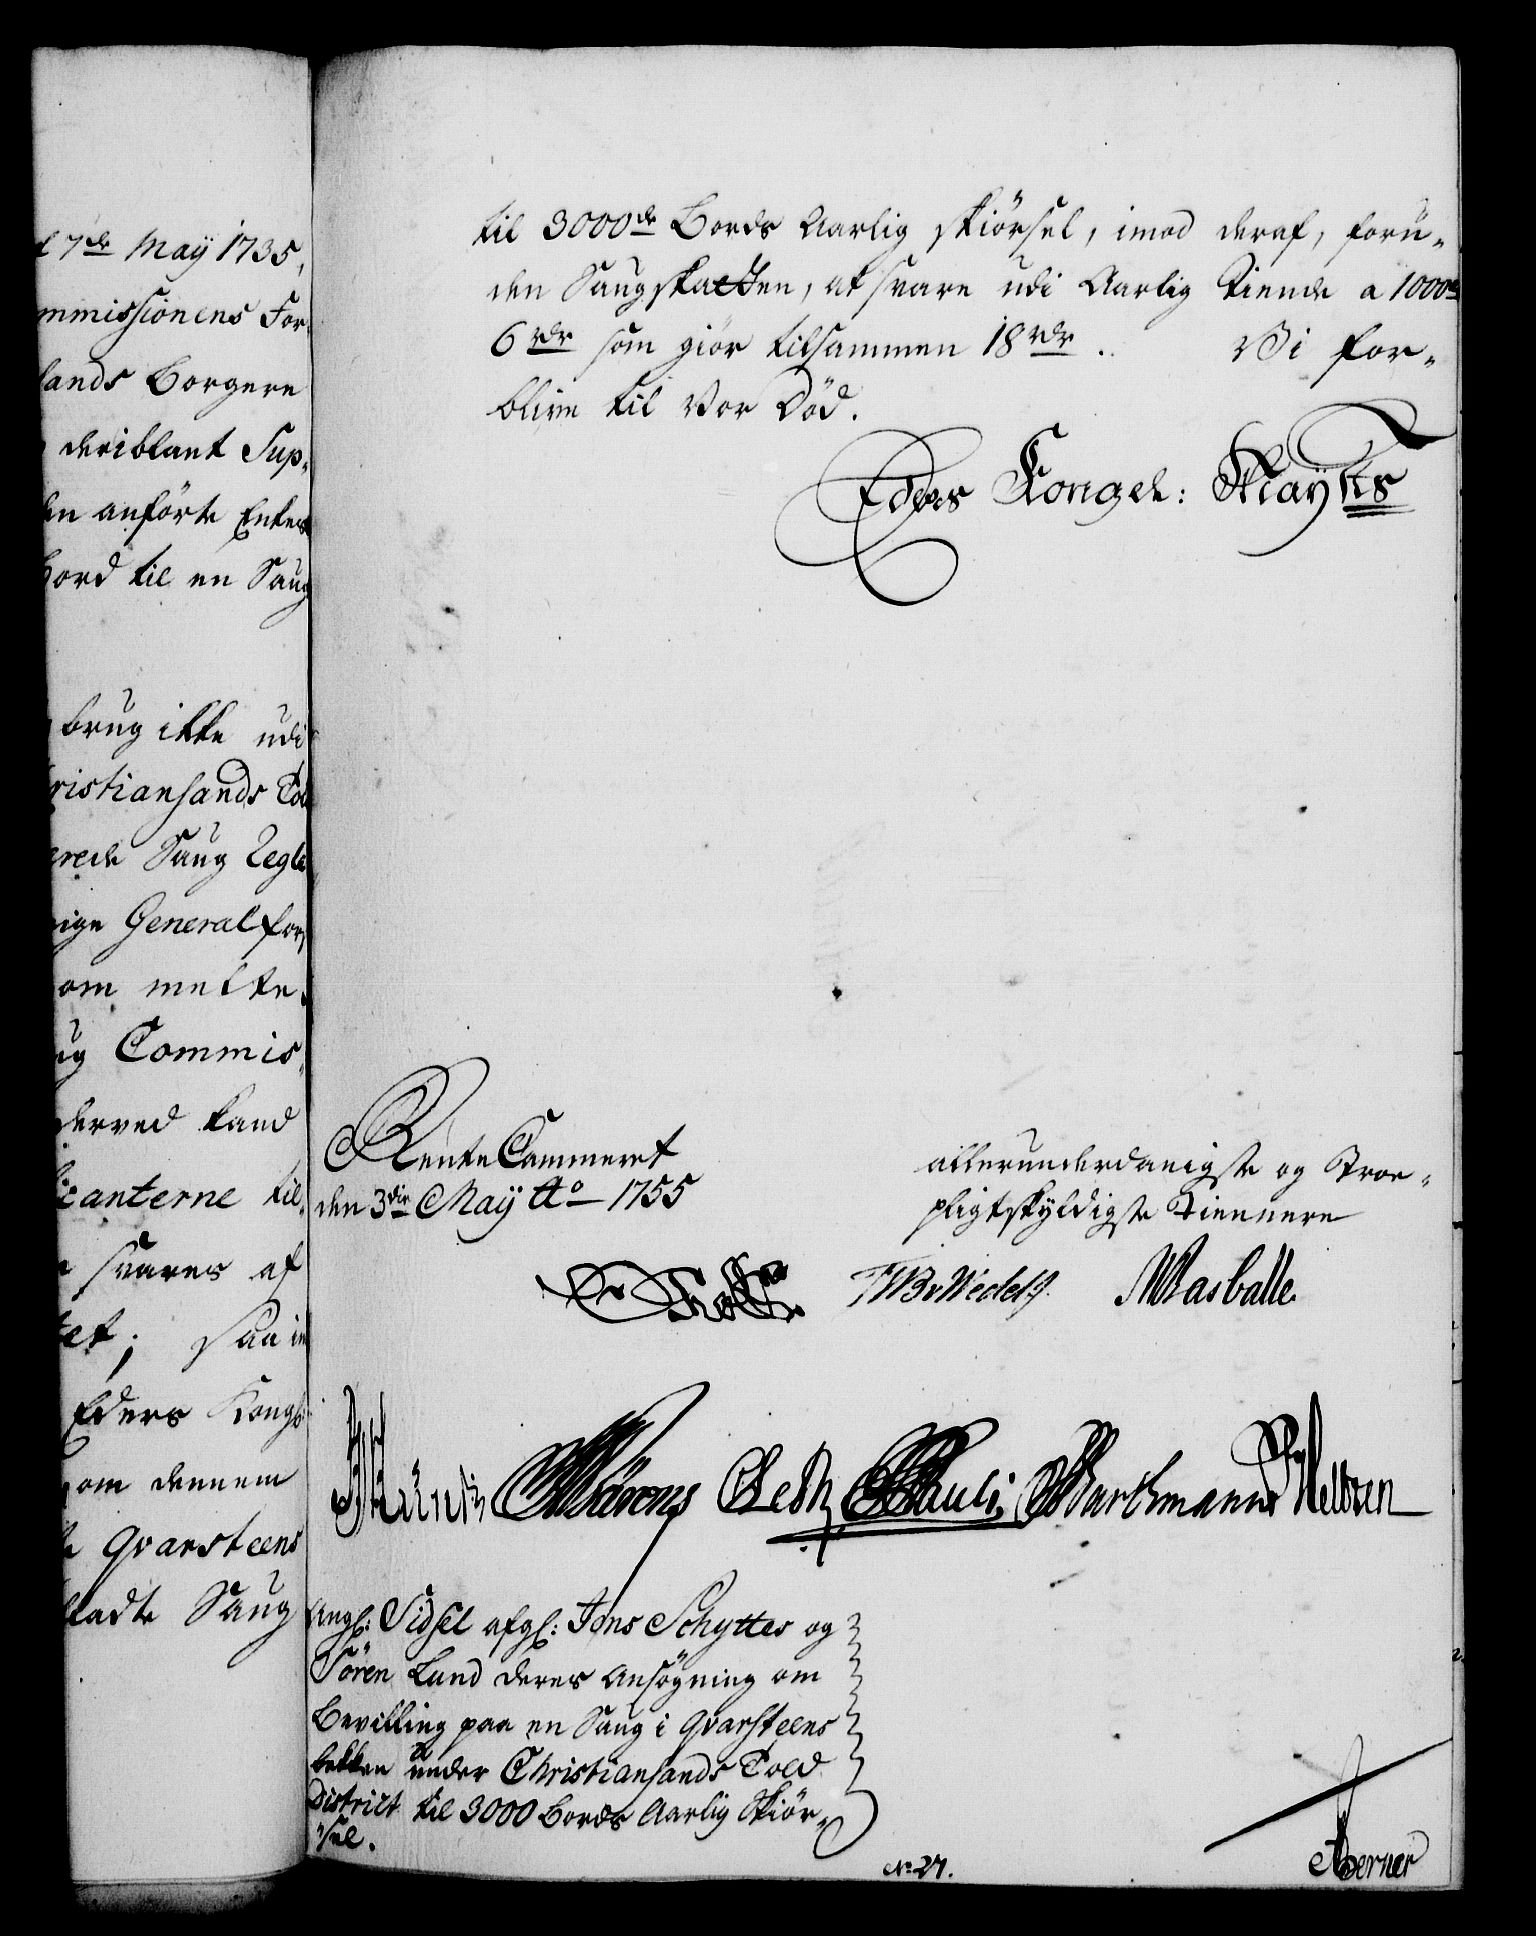 d 7de Maÿ 1735,
mmissionens For-
lands Borgere
deriblant Sup-
en anförte Enkes
bord til en Saug
brug ikke udi
ristiansands Tol
erede Saug Regle
General for
om melte
ug Commis-
derved kand
canterne til
svares af
tet; saa in
Eders Kongl:
om dennem
Qvarsteens
stadte Saug
til 3000de Bords Aarlig skiörsel, imod deraf, foru-
den Saugskatten, at svare udi Aarlig Tiende a 1000de
6 rdr som giör tilsammen 18 rdr. Vi for-
blive til Vor Död.
Eders Kongel: Maÿtts
Rente Cammeret
den 3die Maÿ Ao 1755
allerunderdanigste og Troe-
pligtskyldigste Tiennere
Holst FWBvWedelsp. MRasballe
Pauli Barthmann Meltzen
Angl: Sidsel afgl: Jens Schyttes og
Sören Lund deres Ansögning om
Bevilling paa en Saug i Qvarsteens
bekken under Christiansands Told
District til 3000 Bords Aarlig Skiör-
sel.
No 27.
Berner